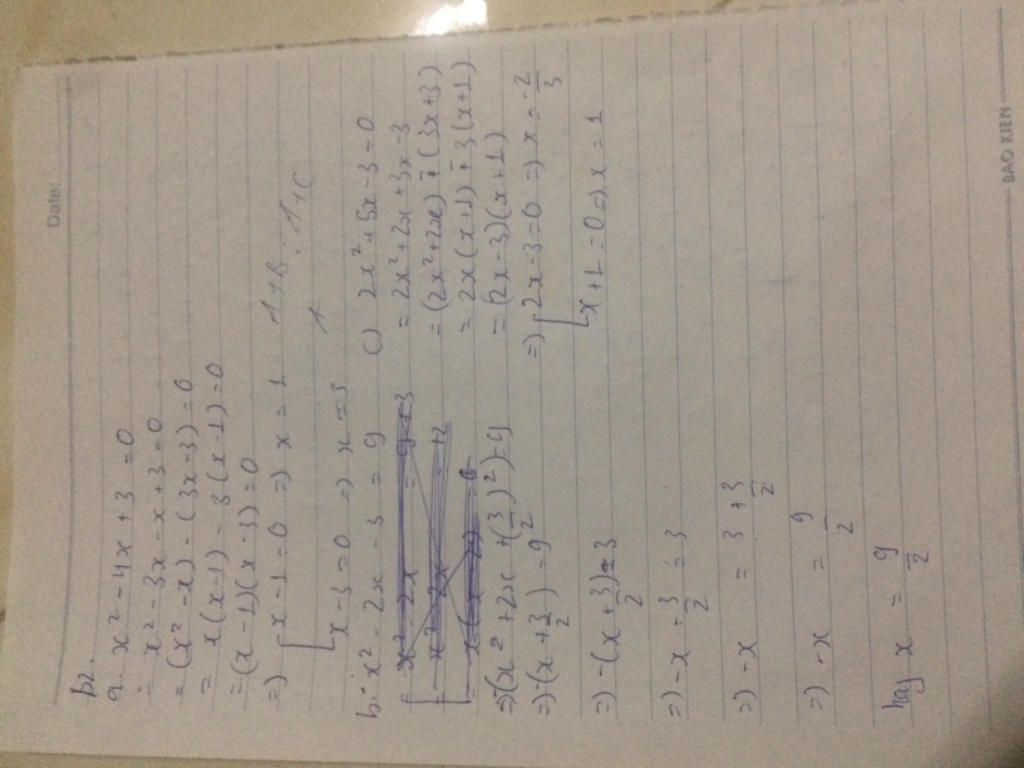 Date:
b2.
a. x² - 4x + 3 = 0
= x² - 3x - x + 3 = 0
= (x² - x) - (3x - 3) = 0
= x(x-1) - 3(x-1) = 0
= (x-1)(x-3) = 0
=) [x - 1 = 0 =) x = 1
x - 3 = 0 =) x = 3
A+B
A
A+C
b. x² - 2x - 3 = 9
=) -(x² + 2x + (3/2)²) = 9
=) -(x + 3/2) = 9
=) -(x + 3/2) = 3
=) -x - 3/2 = 3
=) -x = 3 + 3/2
=) -x = 9/2
hay x = 9/2
c) 2x² + 5x - 3 = 0
= 2x² + 2x + 3x - 3
= (2x² + 2x) - (3x + 3)
= 2x(x+1) - 3(x+1)
= (2x - 3)(x + 1)
=) [2x - 3 = 0 =) x = -2/3
x + 1 = 0 =) x = 1
BAO KIEN